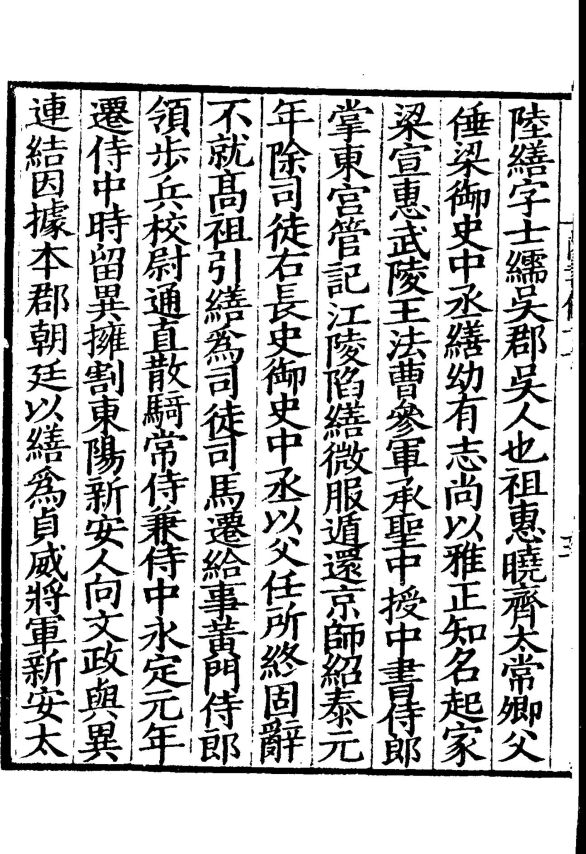 陸繕字士繻吳郡吳人也祖惠曉齊太常卿父
倕梁御史中丞繕幼有志尚以雅正知名起家
梁宣惠武陵王法曹參軍承聖中授中書侍郎
掌東宮管記江陵陷繕微服遁還京師紹泰元
年除司徒右長史御史中丞以父任所終固辭
不就高祖引繕爲司徒司馬遷給事黃門侍郎
領步兵校尉通直散騎常侍兼侍中永定元年
遷侍中時留異擁割東陽新安人向文政與異
連結因據本郡朝廷以繕爲貞威將軍新安太